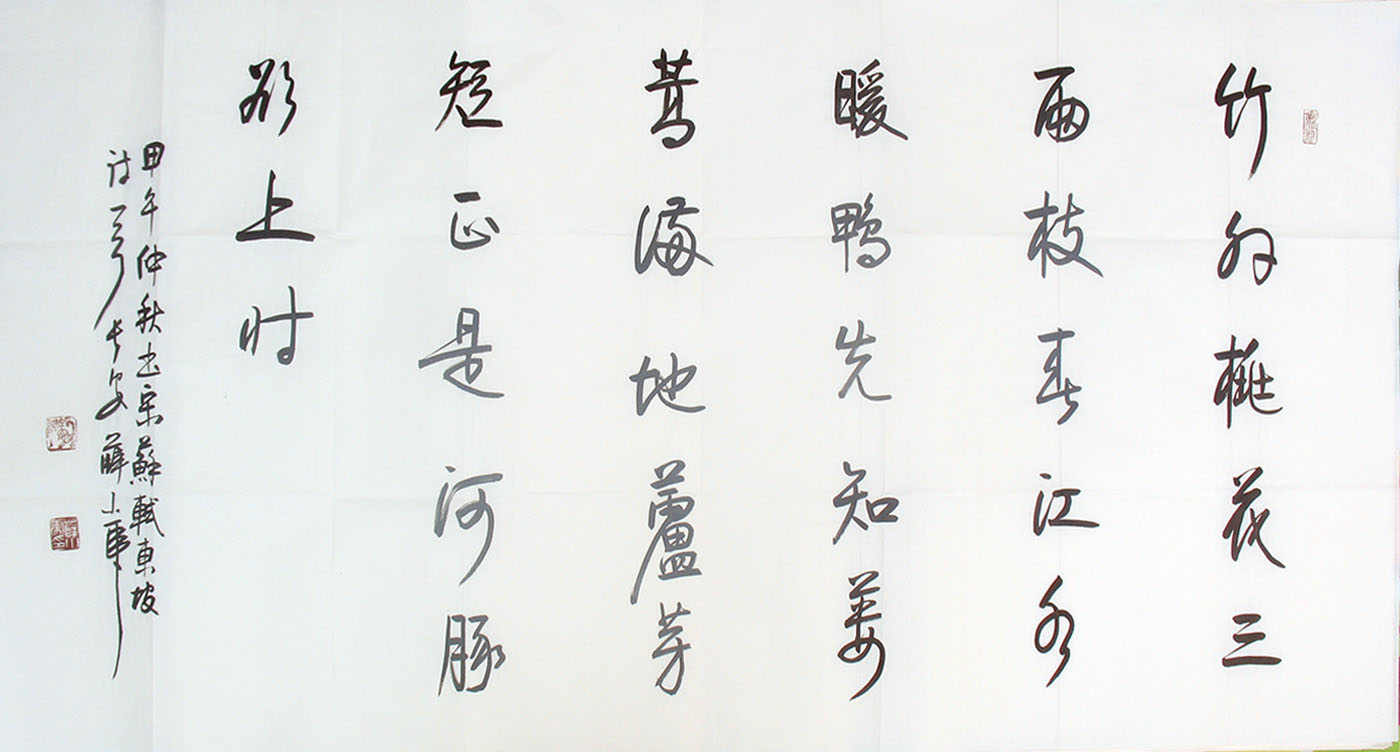 竹外桃花三
两枝春江水
暖鸭先知蒌
蒿满地蘆芽
短正是河豚
欲上时
甲午仲秋书宋蘇軾東坡
诗一首长安薛小军